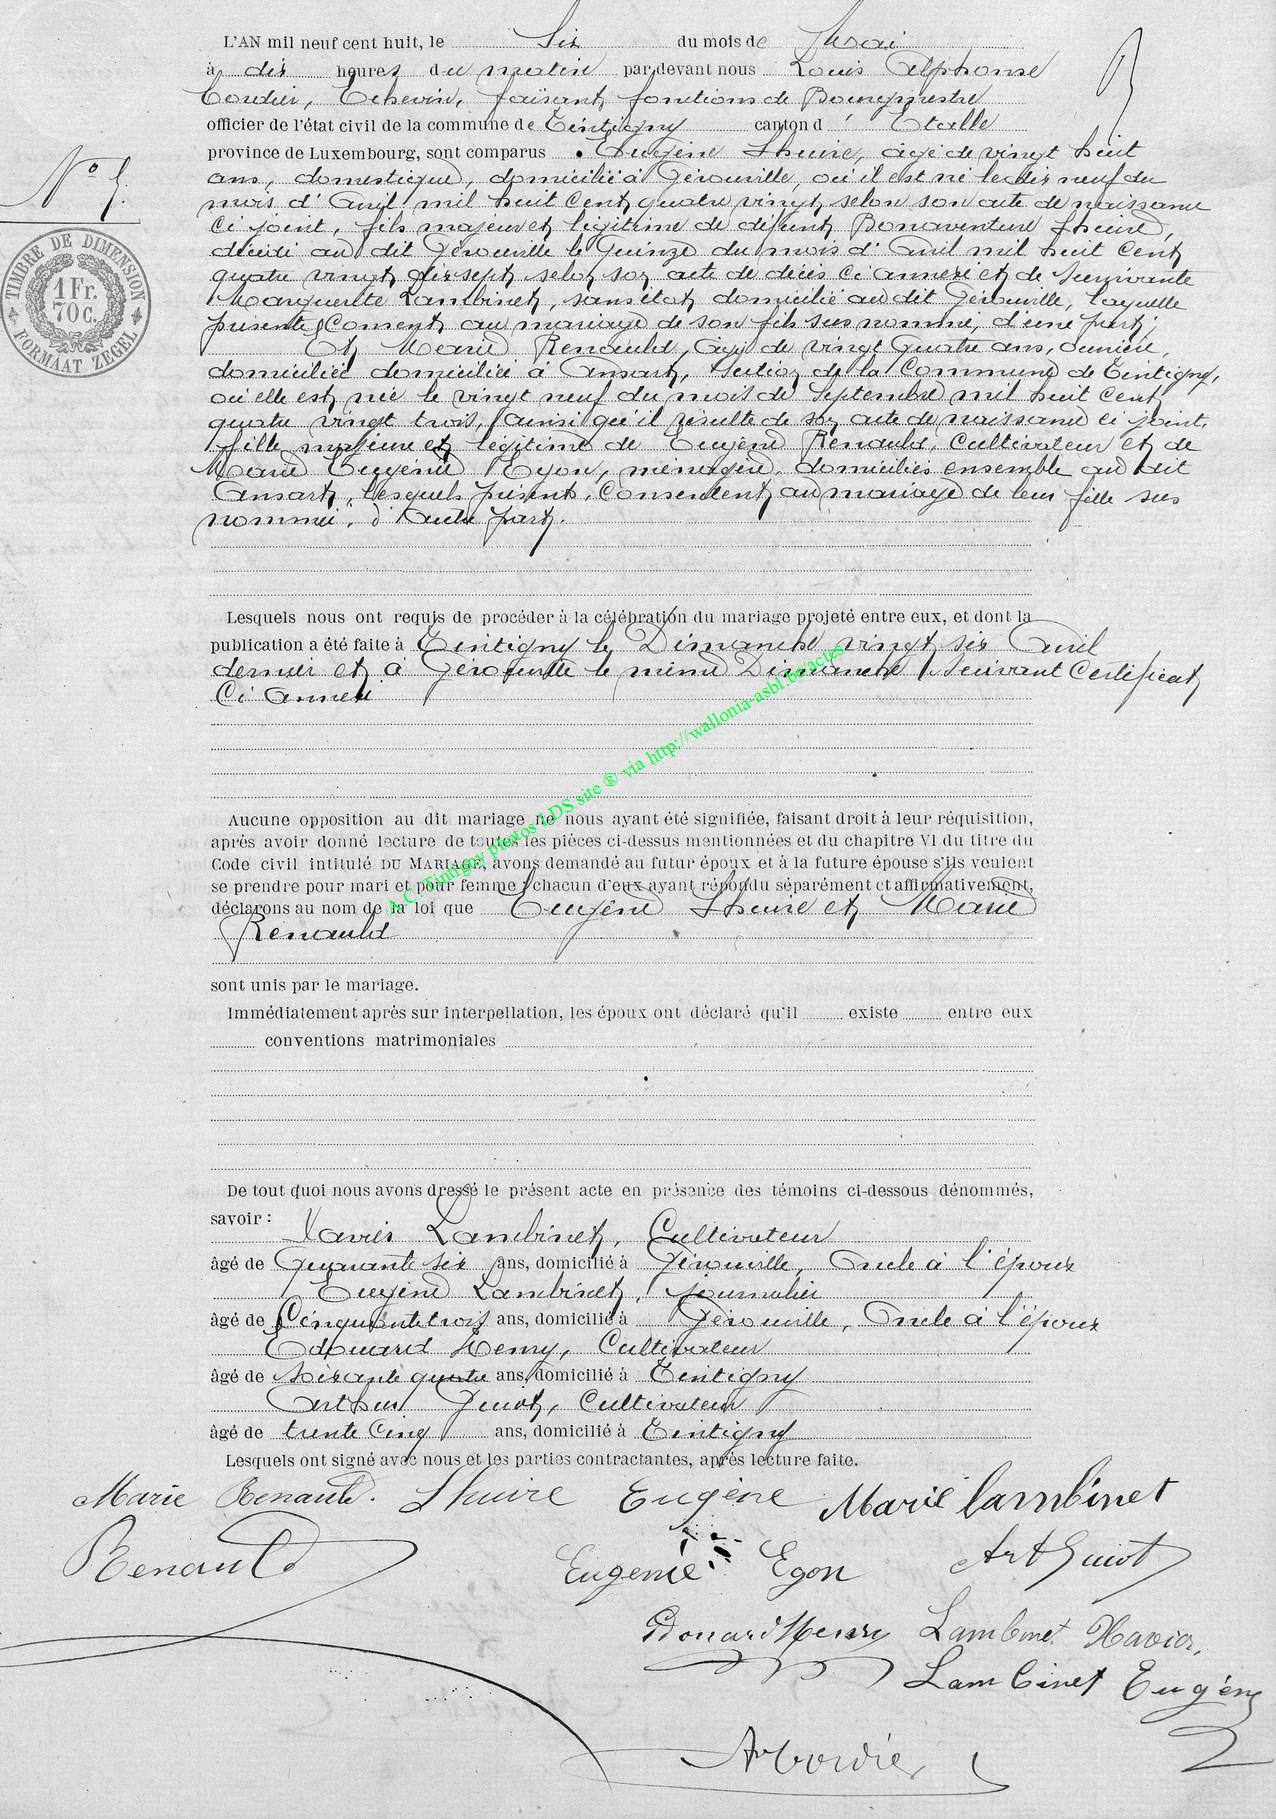 L'AN mil neuf cent huit, le six du mois de Mai
à dix heures du matin par devant nous Louis Alphonse
Cordier, Echevin, faisant fonctions de Bourgmestre
officier de l'état civil de la commune de Tintigny canton d'Etalle
province de Luxembourg, sont comparus Eugène Lhuire, âgé de vingt huit
ans, domestique, domicilié à Gérouville, où il est né le dix neuf du
mois d'Avril mil huit cent quatre vingt, selon son acte de naissance
ci joint, fils majeur et légitime de défunt Bonaventure Lhuire,
décédé au dit Gérouville le quinze du mois d'Avril mil huit cent
quatre vingt dix sept selon son acte de décès ci annexé et de survivante
Marguerite Lambinet, sans état, domicilié au dit Gérouville, laquelle
présente, Consent au mariage de son fils sus nommé, d'une part;
Et Marie Renauld, âgé de vingt quatre ans,
domiciliée domiciliée à Ansart, section de la Commune de Tintigny,
où elle est née le vingt neuf du mois de Septembre mil huit cent
quatre vingt trois, ainsi qu'il résulte de son acte de naissance ci joint,
fille majeure et légitime de Eugène Renauld, Cultivateur et de
Marie Eugénie Egon, ménagère, domiciliés ensemble au dit
Ansart, lesquels présents, Consentent au mariage de leur fille sus
nommée, d'autre part.
No 5.
TIMBRE DE DIMENSION
1 Fr.
70 C.
FORMAAT ZEGEL
Lesquels nous ont requis de procéder à la célébration du mariage projeté entre eux, et dont la
publication a été faite à Tintigny le Dimanche vingt six Avril
dernier et à Gérouville le même Dimanche suivant Certificat
Ci Annexé
Aucune opposition au dit mariage ne nous ayant été signifiée, faisant droit à leur réquisition,
après avoir donné lecture de toutes les pièces ci-dessus mentionnées et du chapitre VI du titre du
Code civil intitulé DU MARIAGE, avons demandé au futur époux et à la future épouse s'ils veulent
se prendre pour mari et pour femme; chacun d'eux ayant répondu séparément et affirmativement,
déclarons au nom de la loi que Eugène Lhuire et Marie
Renauld
A.C. Tintigny photos LDS site ® via http://wallonia-asbl.be/actes
sont unis par le mariage.
Immédiatement après sur interpellation, les époux ont déclaré qu'il existe entre eux
conventions matrimoniales
De tout quoi nous avons dressé le présent acte en présence des témoins ci-dessous dénommés,
savoir : Xavier Lambinet, Cultivateur
âgé de Quarante six ans, domicilié à Gérouville, Oncle à l'époux
Eugène Lambinet, journalier
âgé de Cinquante trois ans, domicilié à Gérouville, Oncle à l'époux
Edouard Henry, Cultivateur
âgé de soixante quatre ans, domicilié à Tintigny
Arthur Guiot, Cultivateur
âgé de trente Cinq ans, domicilié à Tintigny
Lesquels ont signé avec nous et les parties contractantes, après lecture faite.
Marie Renauld. Lhuire Eugène Marie Lambinet
Renauld Eugénie Egon Art Guiot
Edouard Henry Lambinet Xavier,
Lambinet Eugène
A Cordier